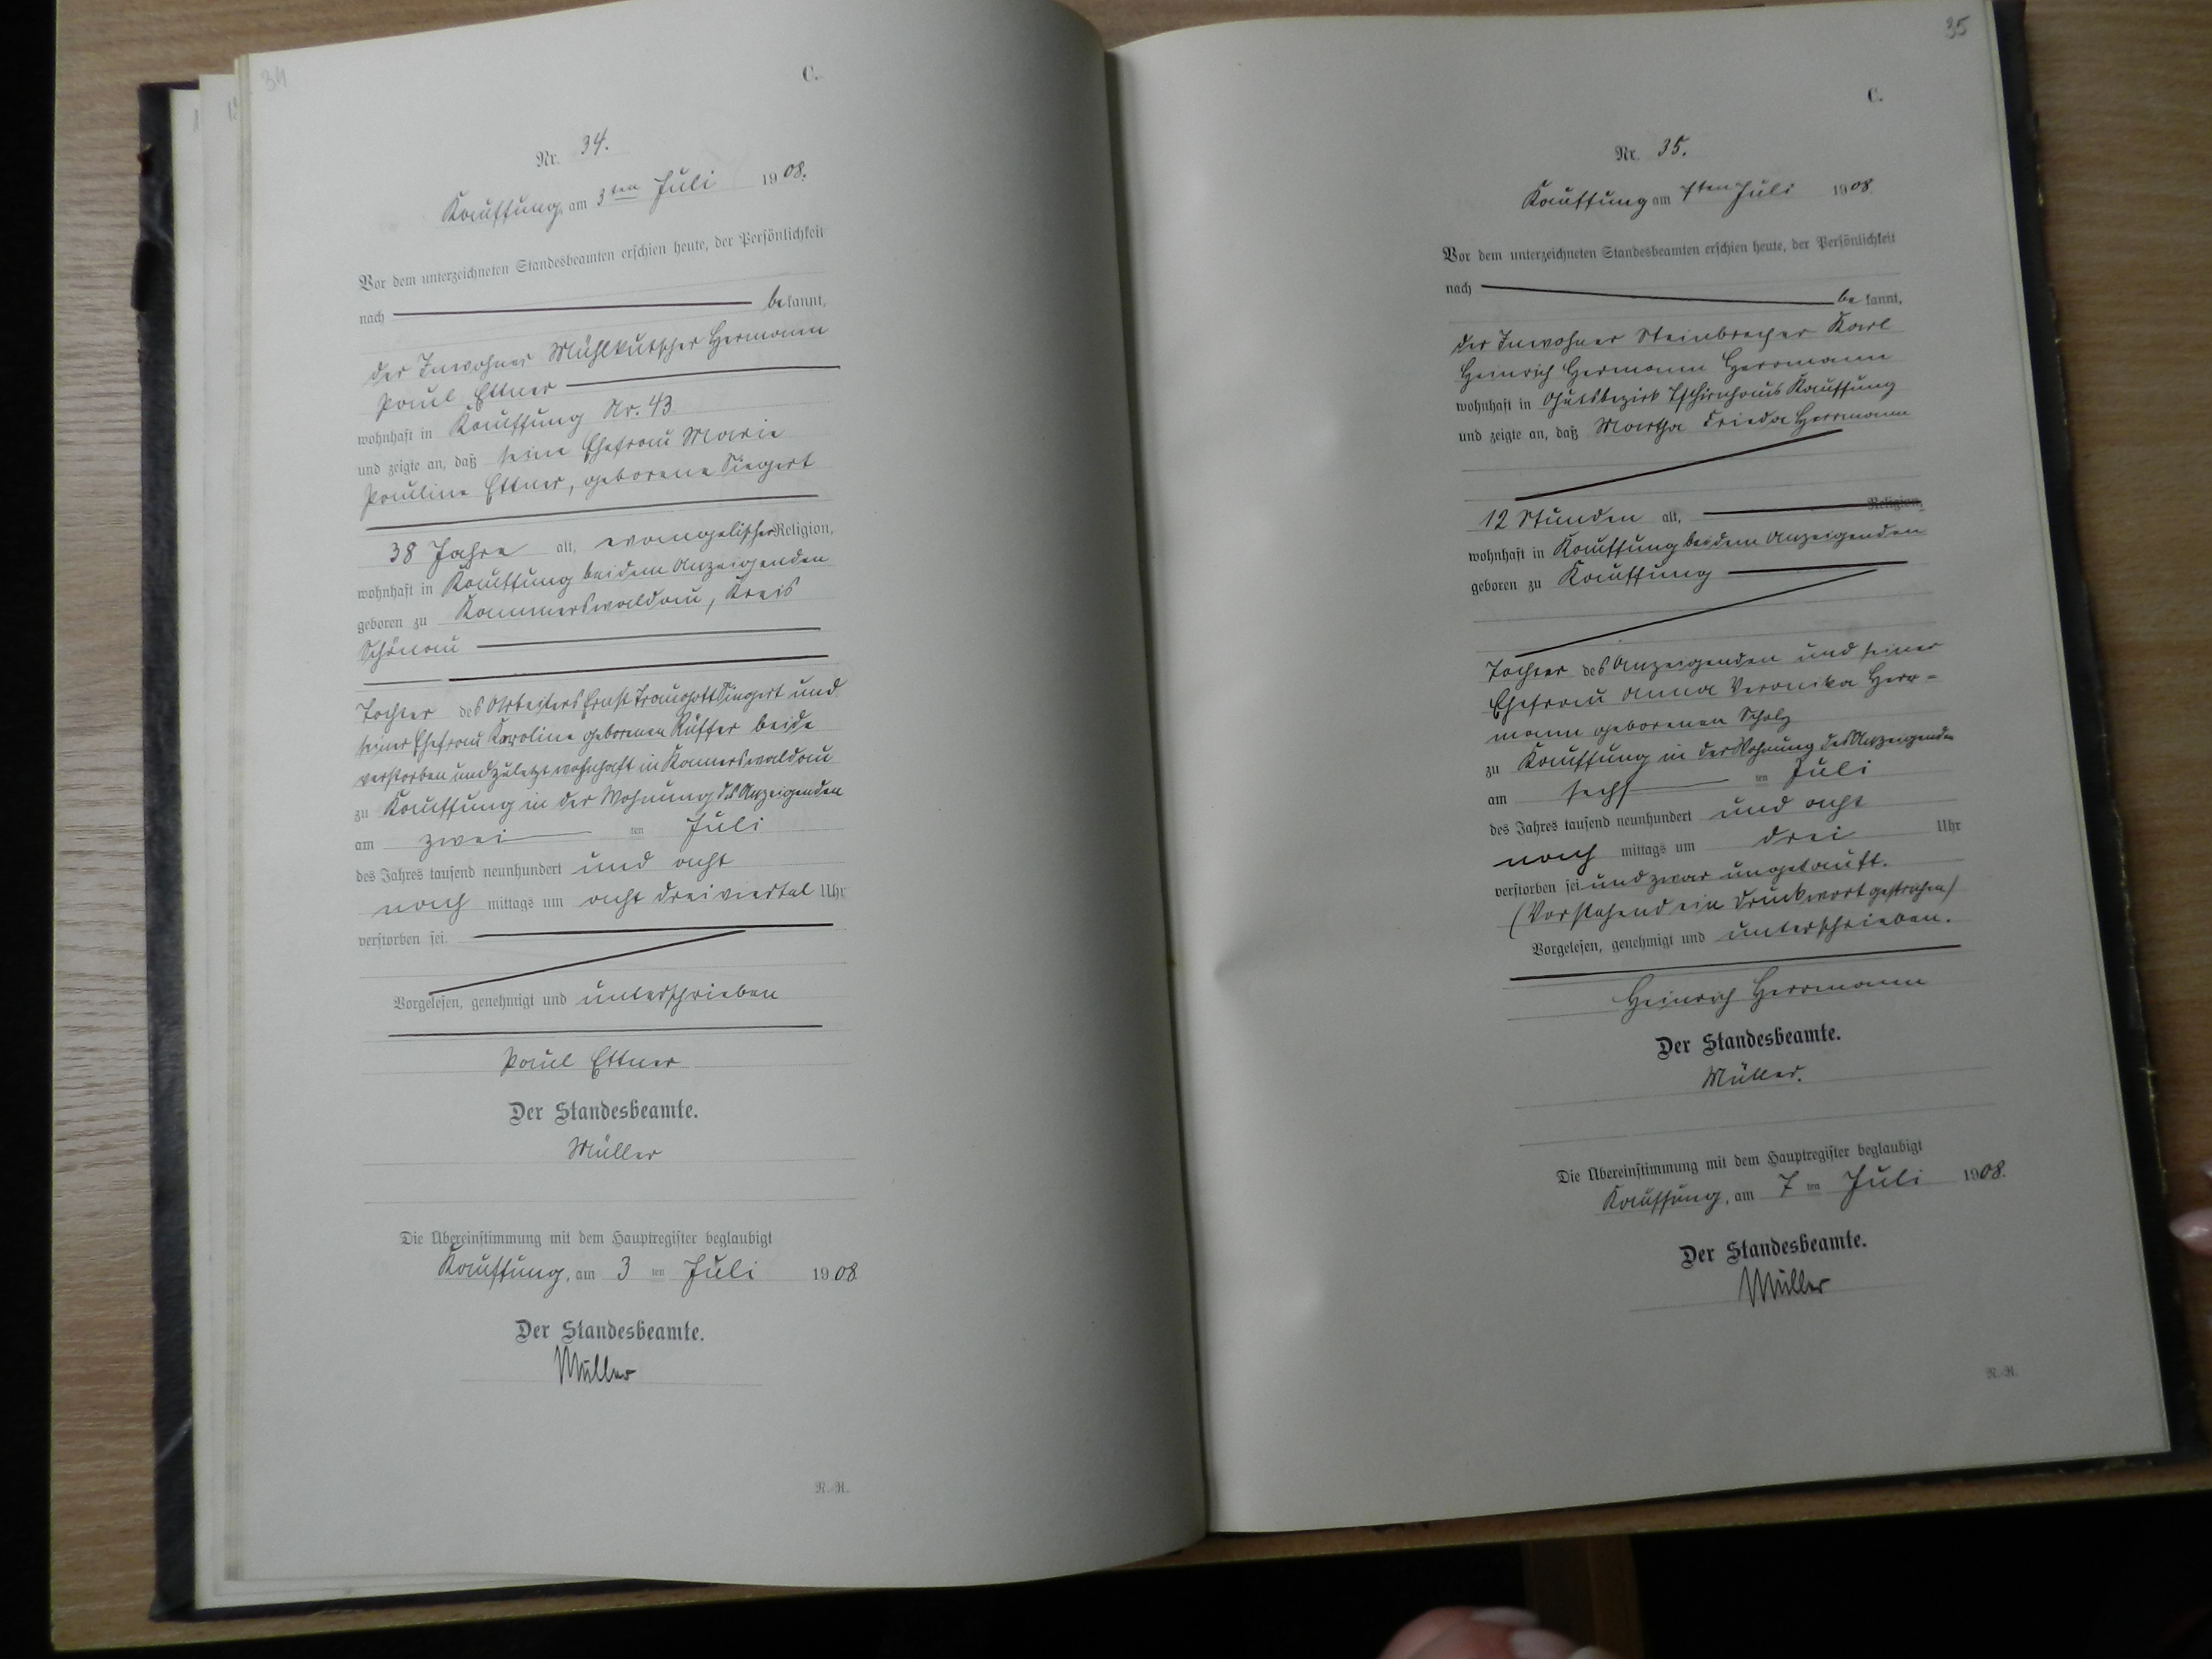 34
C.
Nr. 34.
Kauffung, am 3ten Juli 1908.
Vor dem unterzeichneten Standesbeamten erschien heute, der Persönlichkeit
nach bekannt,
der Inwohner Mühlkutscher Hermann
Paul Ettner
wohnhaft in Kauffung Nr. 43
und zeigte an, daß seine Ehefrau Marie
Pauline Ettner, geborene Siegert
38 Jahre alt, evangelischer Religion,
wohnhaft in Kauffung bei dem Anzeigenden
geboren zu Kammerswaldau, Kreis
Schönau
Tochter des Arbeiters Ernst Traugott Siegert und
seiner Ehefrau Karoline geborenen Rüffer beide
verstorben und zuletzt wohnhaft in Kamerswaldau
zu Kauffung in der Wohnung des Anzeigenden
am zwei ten Juli
des Jahres tausend neunhundert und acht
nach mittags um acht dreiviertel Uhr
verstorben sei.
Vorgelesen, genehmigt und unterschrieben
Paul Ettner
Der Standesbeamte.
Müller
Die Übereinstimmung mit dem Hauptregister beglaubigt
Kauffung, am 3 ten Juli 1908
Der Standesbeamte.
Müller
N.-R.
35
C.
Nr. 35.
Kauffung am 7ten Juli 1908
Vor dem unterzeichneten Standesbeamten erschien heute, der Persönlichkeit
nach bekannt,
der Inwohner Steinbrecher Karl
Heinrich Hermann Herrmann
wohnhaft in Gutsbezirk Tschirnhaus Kauffung
und zeigte an, daß Martha Frieda Herrmann
12 Stunden alt, Religion,
wohnhaft in Kauffung bei dem Anzeigenden
geboren zu Kauffung
Tochter des Anzeigenden und seiner
Ehefrau Anna Veronika Herr-
mann geborenen Scholz
zu Kauffung in der Wohnung des Anzeigenden
am sechs ten Juli
des Jahres tausend neunhundert und acht
nach mittags um drei Uhr
verstorben sei und zwar ungetauft.
(Vorstehend ein Druckwort gestrichen)
Vorgelesen, genehmigt und unterschrieben.
Heinrich Herrmann
Der Standesbeamte.
Müller.
Die Übereinstimmung mit dem Hauptregister beglaubigt
Kauffung, am 7 ten Juli 1908.
Der Standesbeamte.
Müller
N.-R.